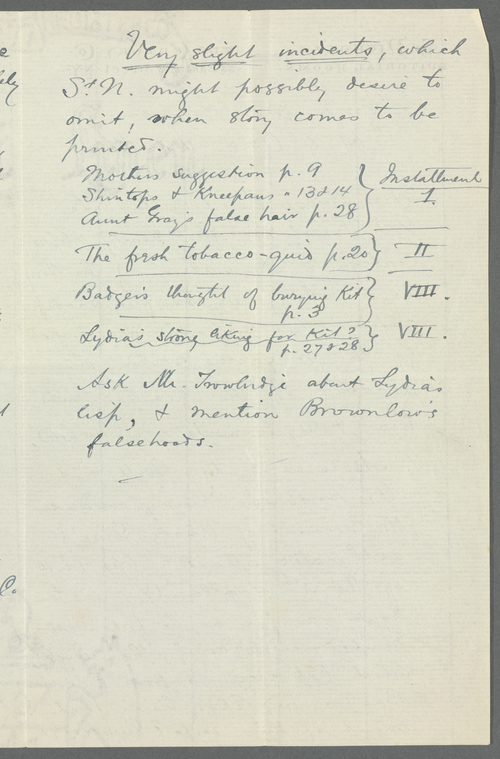 Very slight incidents, which
St. N. might possibly desire to
omit, when story comes to be
printed.
Mother's suggestion p. 9
Shintops & Kneepans " 13 & 14
Aunt Gray's false hair p. 28
Installment
I.
The fresh tobacco-quid p. 20 II
Badger's thought of burying Kit VIII.
p. 3
Lydia's strong liking for Kit? VIII.
p. 27 & 28
Ask Mr. Trowbridge about Lydia's
lisp, & mention Brownlow's
falsehoods.